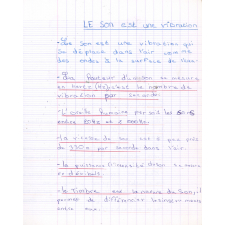 LE Son est une vibration
- Le Son est une vibration qui
Se déplace dans l'air comme
des ondes à la surface de l'eau.
- La Hauteur d'un son se mesure
en hertz (Hz) c'est le nombre de
vibration par seconde
- L'oreille humaine perçoit les sons
entre 20Hz et 20000Hz.
- La vitesse du son est à peu près
de 330m par seconde dans l'air.
- La puissance (l'intensité) du son se mesure
en décibels.
- le Timbre est la nature du Son, il
permet de différencier les instruments
entre eux.